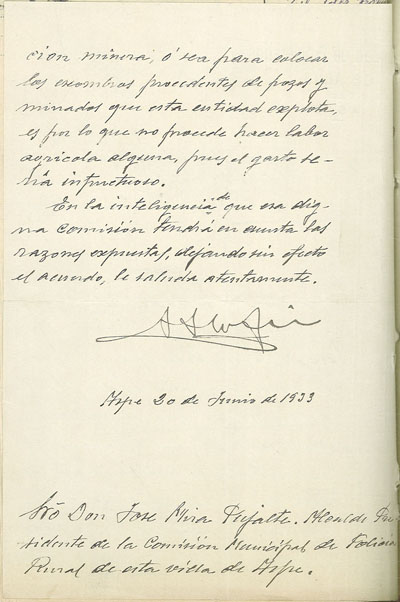 cion minera, ó sea para colocar
los escombros procedentes de pozos y
minados que esta entidad explota,
es por lo que no procede hacer labor
agricola alguna, pues el gasto se-
ria infructuoso.
En la inteligencia de que esa dig-
na Comisión tendrá en cuenta las
razones expuestas, dejando sin efecto
el acuerdo, le saluda atentamente.
Aspe 20 de Junio de 1933
Don Jose Mira Pujalte. Alcalde Pre-
sidente de la Comisión Municipal de Policia
Rural de esta villa de Aspe.